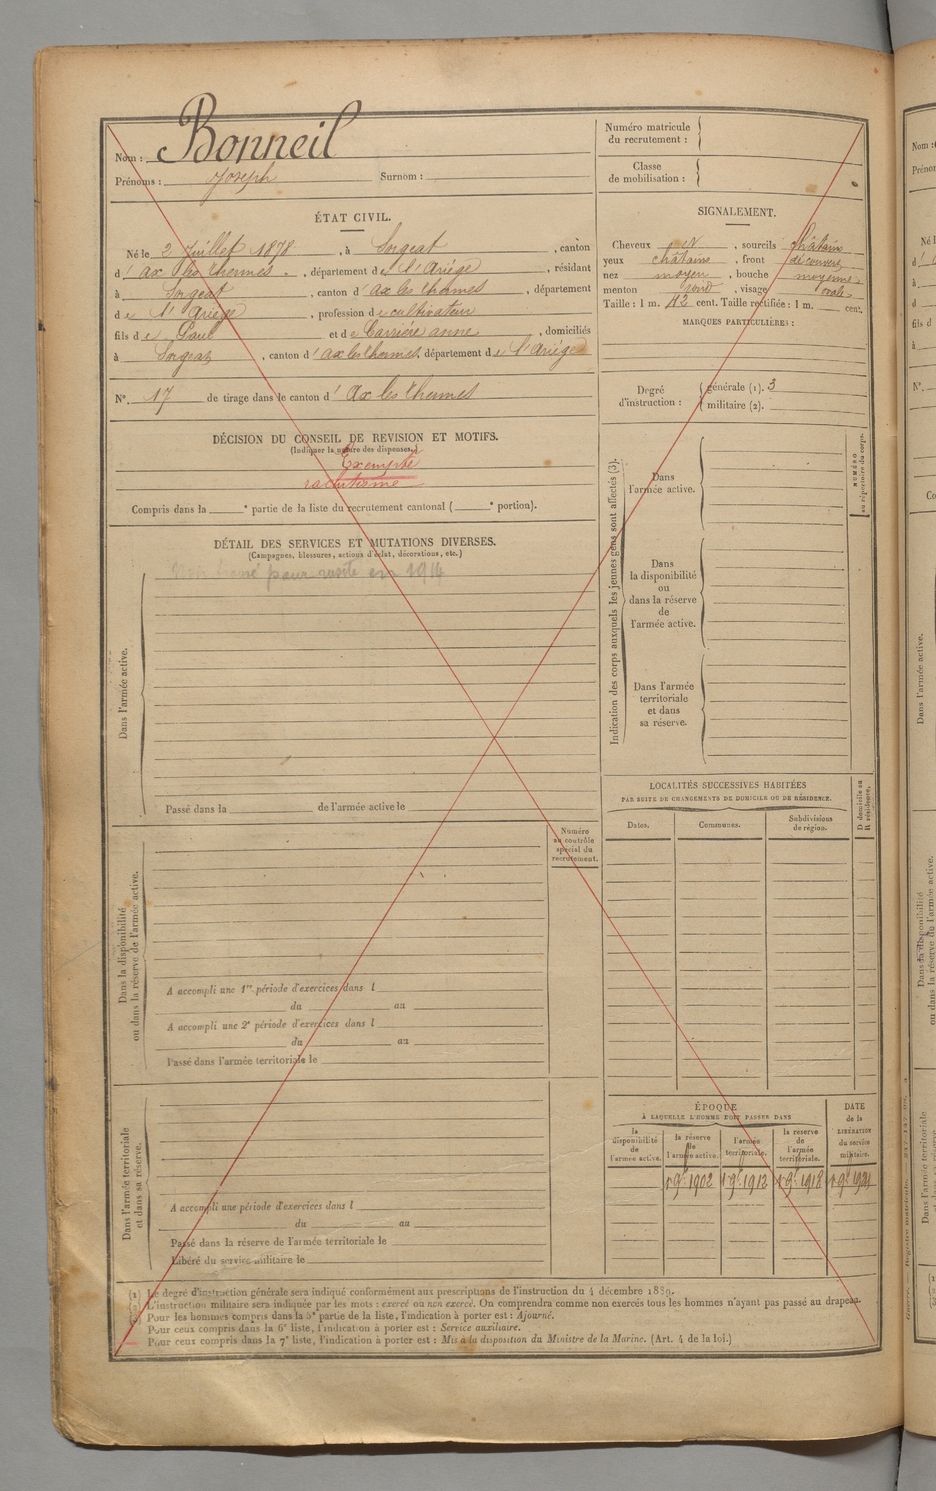 Nom : Bonneil
Prénoms : Joseph Surnom :
Numéro matricule
du recrutement :
Classe
de mobilisation :
ÉTAT CIVIL.
Né le 2 Juillet 1878, à Sorgeat, canton
d'ax les thermes, département de l'Ariège, résidant
à Sorgeat, canton d'ax les thermes, département
de l'Ariège, profession de cultivateur
fils de Paul et de Carrière anne, domiciliés
à Sorgeat, canton d'ax les thermes, département de l'Ariège
N°. 17 de tirage dans le canton d'Ax les thermes
SIGNALEMENT.
Cheveux , sourcils châtains
yeux châtains, front découvert
nez moyen, bouche moyenne
menton rond, visage ovale
Taille : 1 m. cent. Taille rectifiée : 1 m. cent.
MARQUES PARTICULIÈRES :
Degré
d'instruction :
générale (1). 3
militaire (2).
DÉCISION DU CONSEIL DE REVISION ET MOTIFS.
(Indiquer la nature des dispenses.)
Exempté
rachitisme
Compris dans la e partie de la liste du recrutement cantonal ( e portion).
DÉTAIL DES SERVICES ET MUTATIONS DIVERSES.
(Campagnes, blessures, actions d'éclat, décorations, etc.)
pour visite en 1914
Dans l'armée active.
Passé dans la de l'armée active le
Indication des corps auxquels les jeunes gens sont affectés (3).
Dans
l'armée active.
Dans
la disponibilité
ou
dans la réserve
de
l'armée active.
Dans l'armée
territoriale
et dans
sa réserve.
NUMÉRO
au répertoire du corps.
LOCALITÉS SUCCESSIVES HABITÉES
PAR SUITE DE CHANGEMENTS DE DOMICILE OU DE RÉSIDENCE.
D domicile ou
R résidence.
Dates.
Communes.
Subdivisions
de région.
Numéro
au contrôle
spécial du
recrutement.
Dans la disponibilité
ou dans la réserve de l'armée active.
A accompli une 1re période d'exercices dans l
du au
A accompli une 2e période d'exercices dans l
du au
Passé dans l'armée territoriale le
Dans l'armée territoriale
et dans sa réserve.
A accompli une période d'exercices dans l
du au
Passé dans la réserve de l'armée territoriale le
Libéré du service militaire le
ÉPOQUE
À LAQUELLE L'HOMME DOIT PASSER DANS
la
disponibilité
de
l'armée active.
la réserve
de
l'armée active.
l'armée
territoriale.
la réserve
de
l'armée
territoriale.
DATE
de la
LIBÉRATION
du service
militaire.
1 9bre 1902 1 9bre 1912 1 9bre 1918 1 9bre 1921
(1) Le degré d'instruction générale sera indiqué conformément aux prescriptions de l'instruction du 4 décembre 1889.
(2) L'instruction militaire sera indiquée par les mots : exercé ou non exercé. On comprendra comme non exercés tous les hommes n'ayant pas passé au drapeau.
(3) Pour les hommes compris dans la 5e partie de la liste, l'indication à porter est : Ajourné.
Pour ceux compris dans la 6e liste, l'indication à porter est : Service auxiliaire.
Pour ceux compris dans la 7e liste, l'indication à porter est : Mis à la disposition du Ministre de la Marine. (Art. 4 de la loi.)